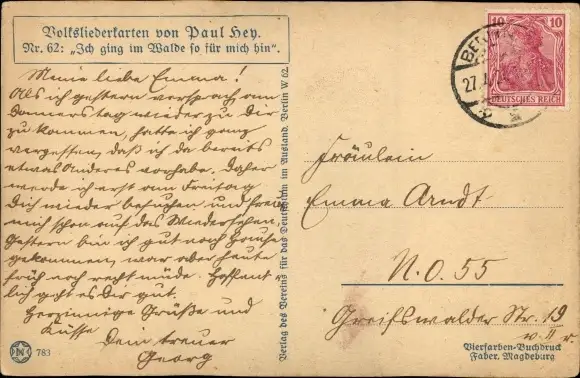 Volksliederkarten von Paul Hey.
Nr. 62: „Ich ging im Walde so für mich hin".
Meine liebe Emma!
Als ich gestern versprach am
Donnerstag wieder zu Dir
zu kommen, hatte ich ganz
vergessen, daß ich da bereits
etwas Anderes vorhabe. Daher
werde ich erst am Freitag
Dich wieder besuchen und freue
mich schon auf das Wiedersehen.
Gestern bin ich gut nach Hause
gekommen, war aber heute
früh noch recht müde. Hoffent-
lich geht es Dir gut.
Herzinnige Grüße und
Küsse
Dein treuer
Georg
783
Verlag des Vereins für das Deutschtum im Ausland. Berlin W 62
BERLIN
27.
10 10
DEUTSCHES REICH
Fräulein
Emma Arndt
N.O. 55
Greifswalder Str. 19
v. II r.
Vierfarben-Buchdruck
Faber, Magdeburg